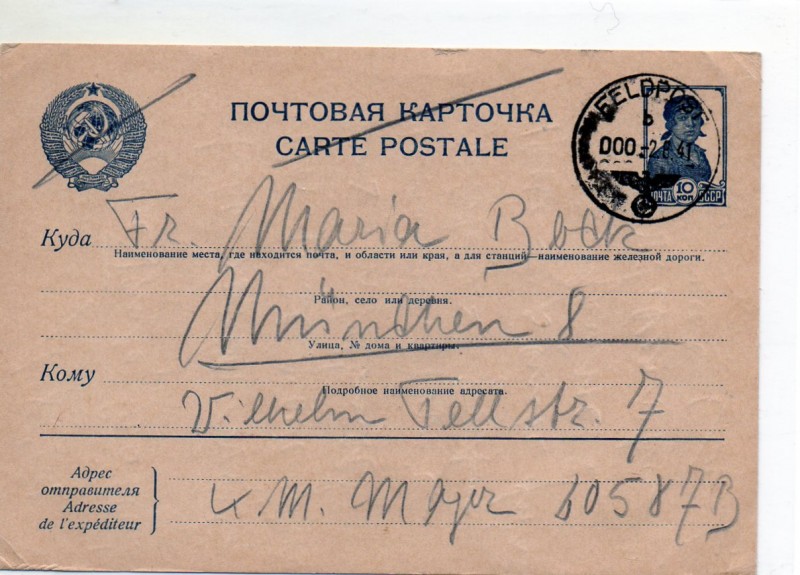 ПОЧТОВАЯ КАРТОЧКА
CARTE POSTALE
FELDPOST
b
000
-2.8.41
ПОЧТА 10 КОП СССР
Куда Fr. Maria Bock
Наименование места, где находится почта, и области или края, а для станций—наименование железной дороги.
München 8
Район, село или деревня.
Улица, № дома и квартиры.
Кому
Подробное наименование адресата.
Wilhelm Tellstr. 7
Адрес
отправителя
Adresse
de l'expéditeur
M. Mayer 60587B